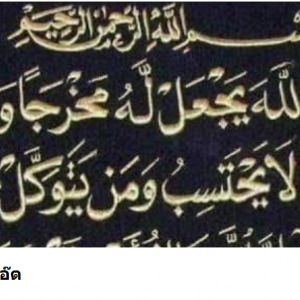 بسم الله الرحمن الرحيم
لله يجعل له مخرجا و
لا يحتسب ومن يتوكل
อ๊ด